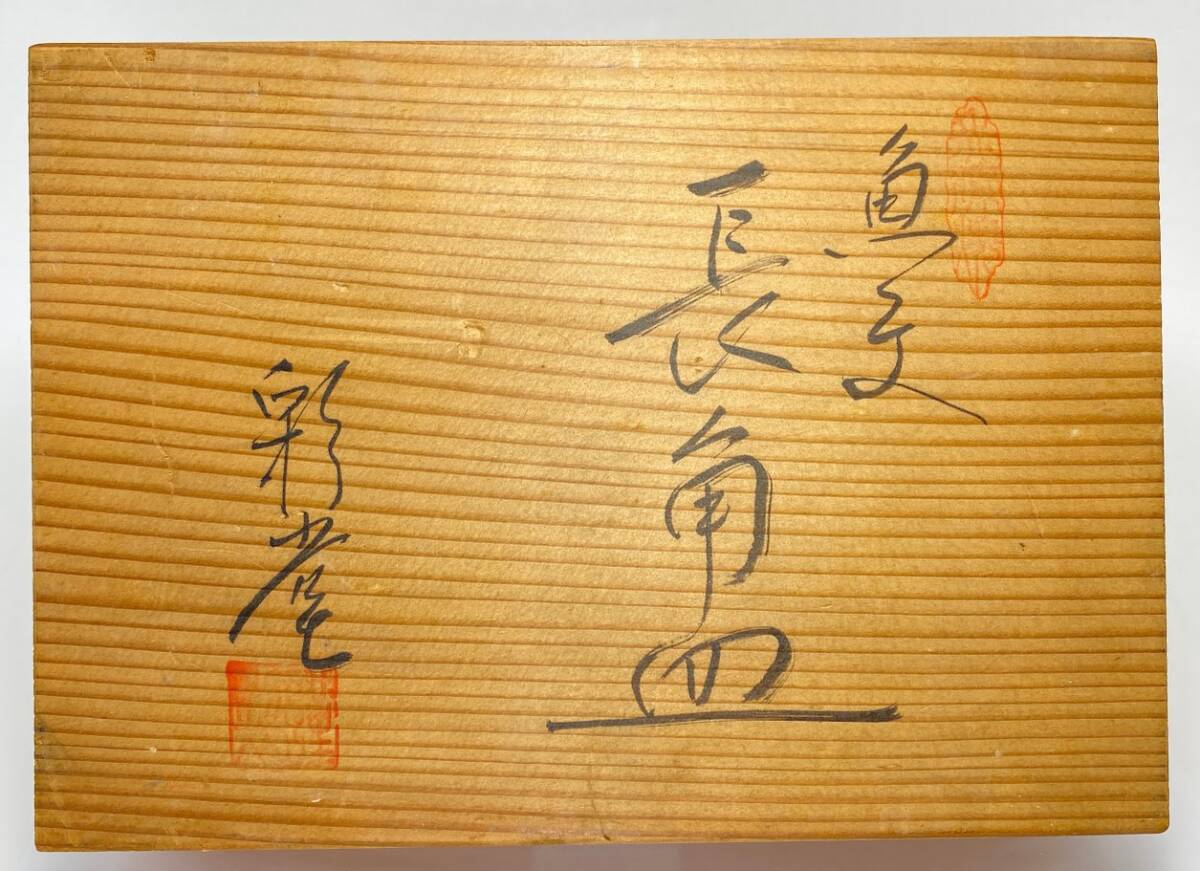 魚文
長角皿
彩菴